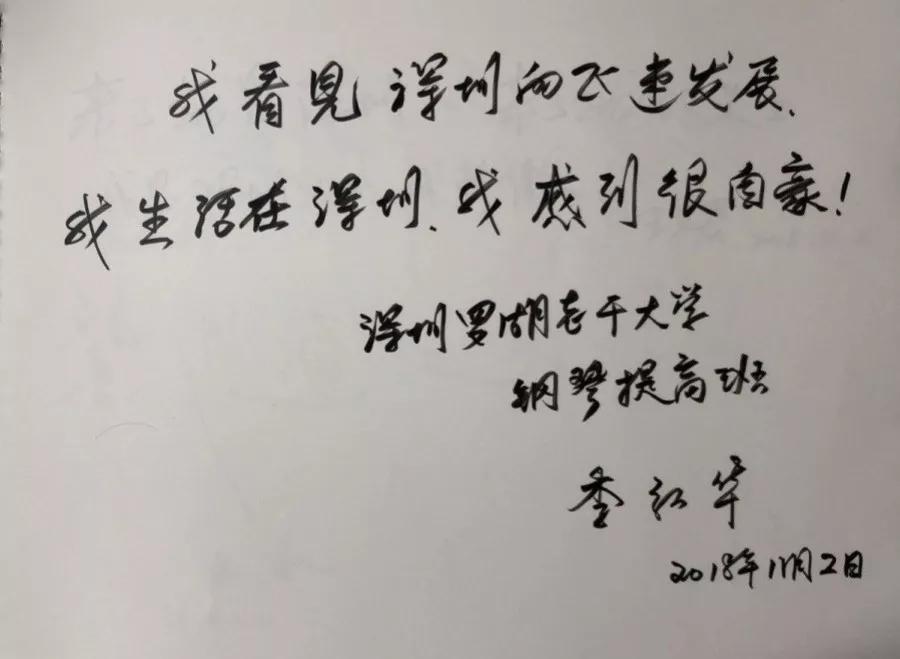 我看见深圳的飞速发展.
我生活在深圳.我感到很自豪!
深圳罗湖老干大学
钢琴提高班
季红华
2018年11月2日